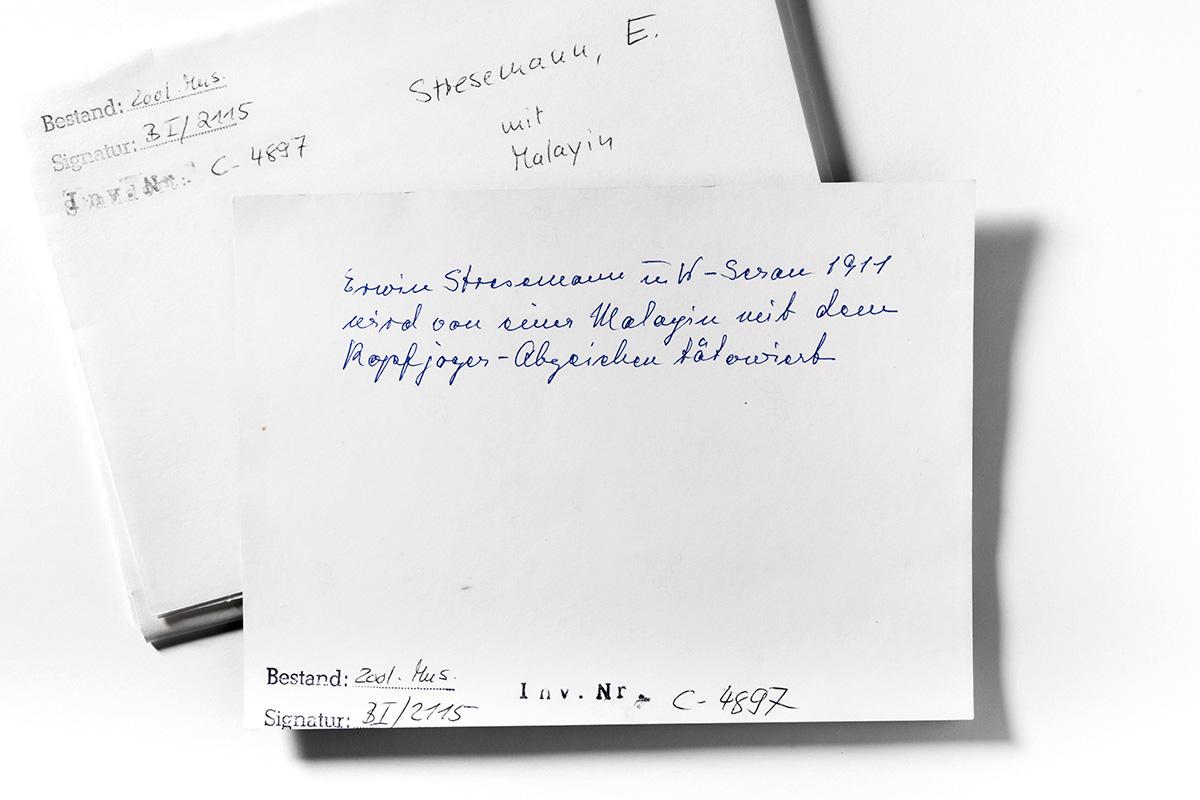 Bestand: Zool. Mus.
Signatur: BI/2115
Inv. Nr.: C-4897
Stresemann, E.
mit
Malayin
Erwin Stresemann in W-Seran 1911
wird von einer Malayin mit dem
Kopfjäger-Abzeichen tätowiert
Bestand: Zool. Mus.
Signatur: BI/2115
Inv. Nr. C-4897